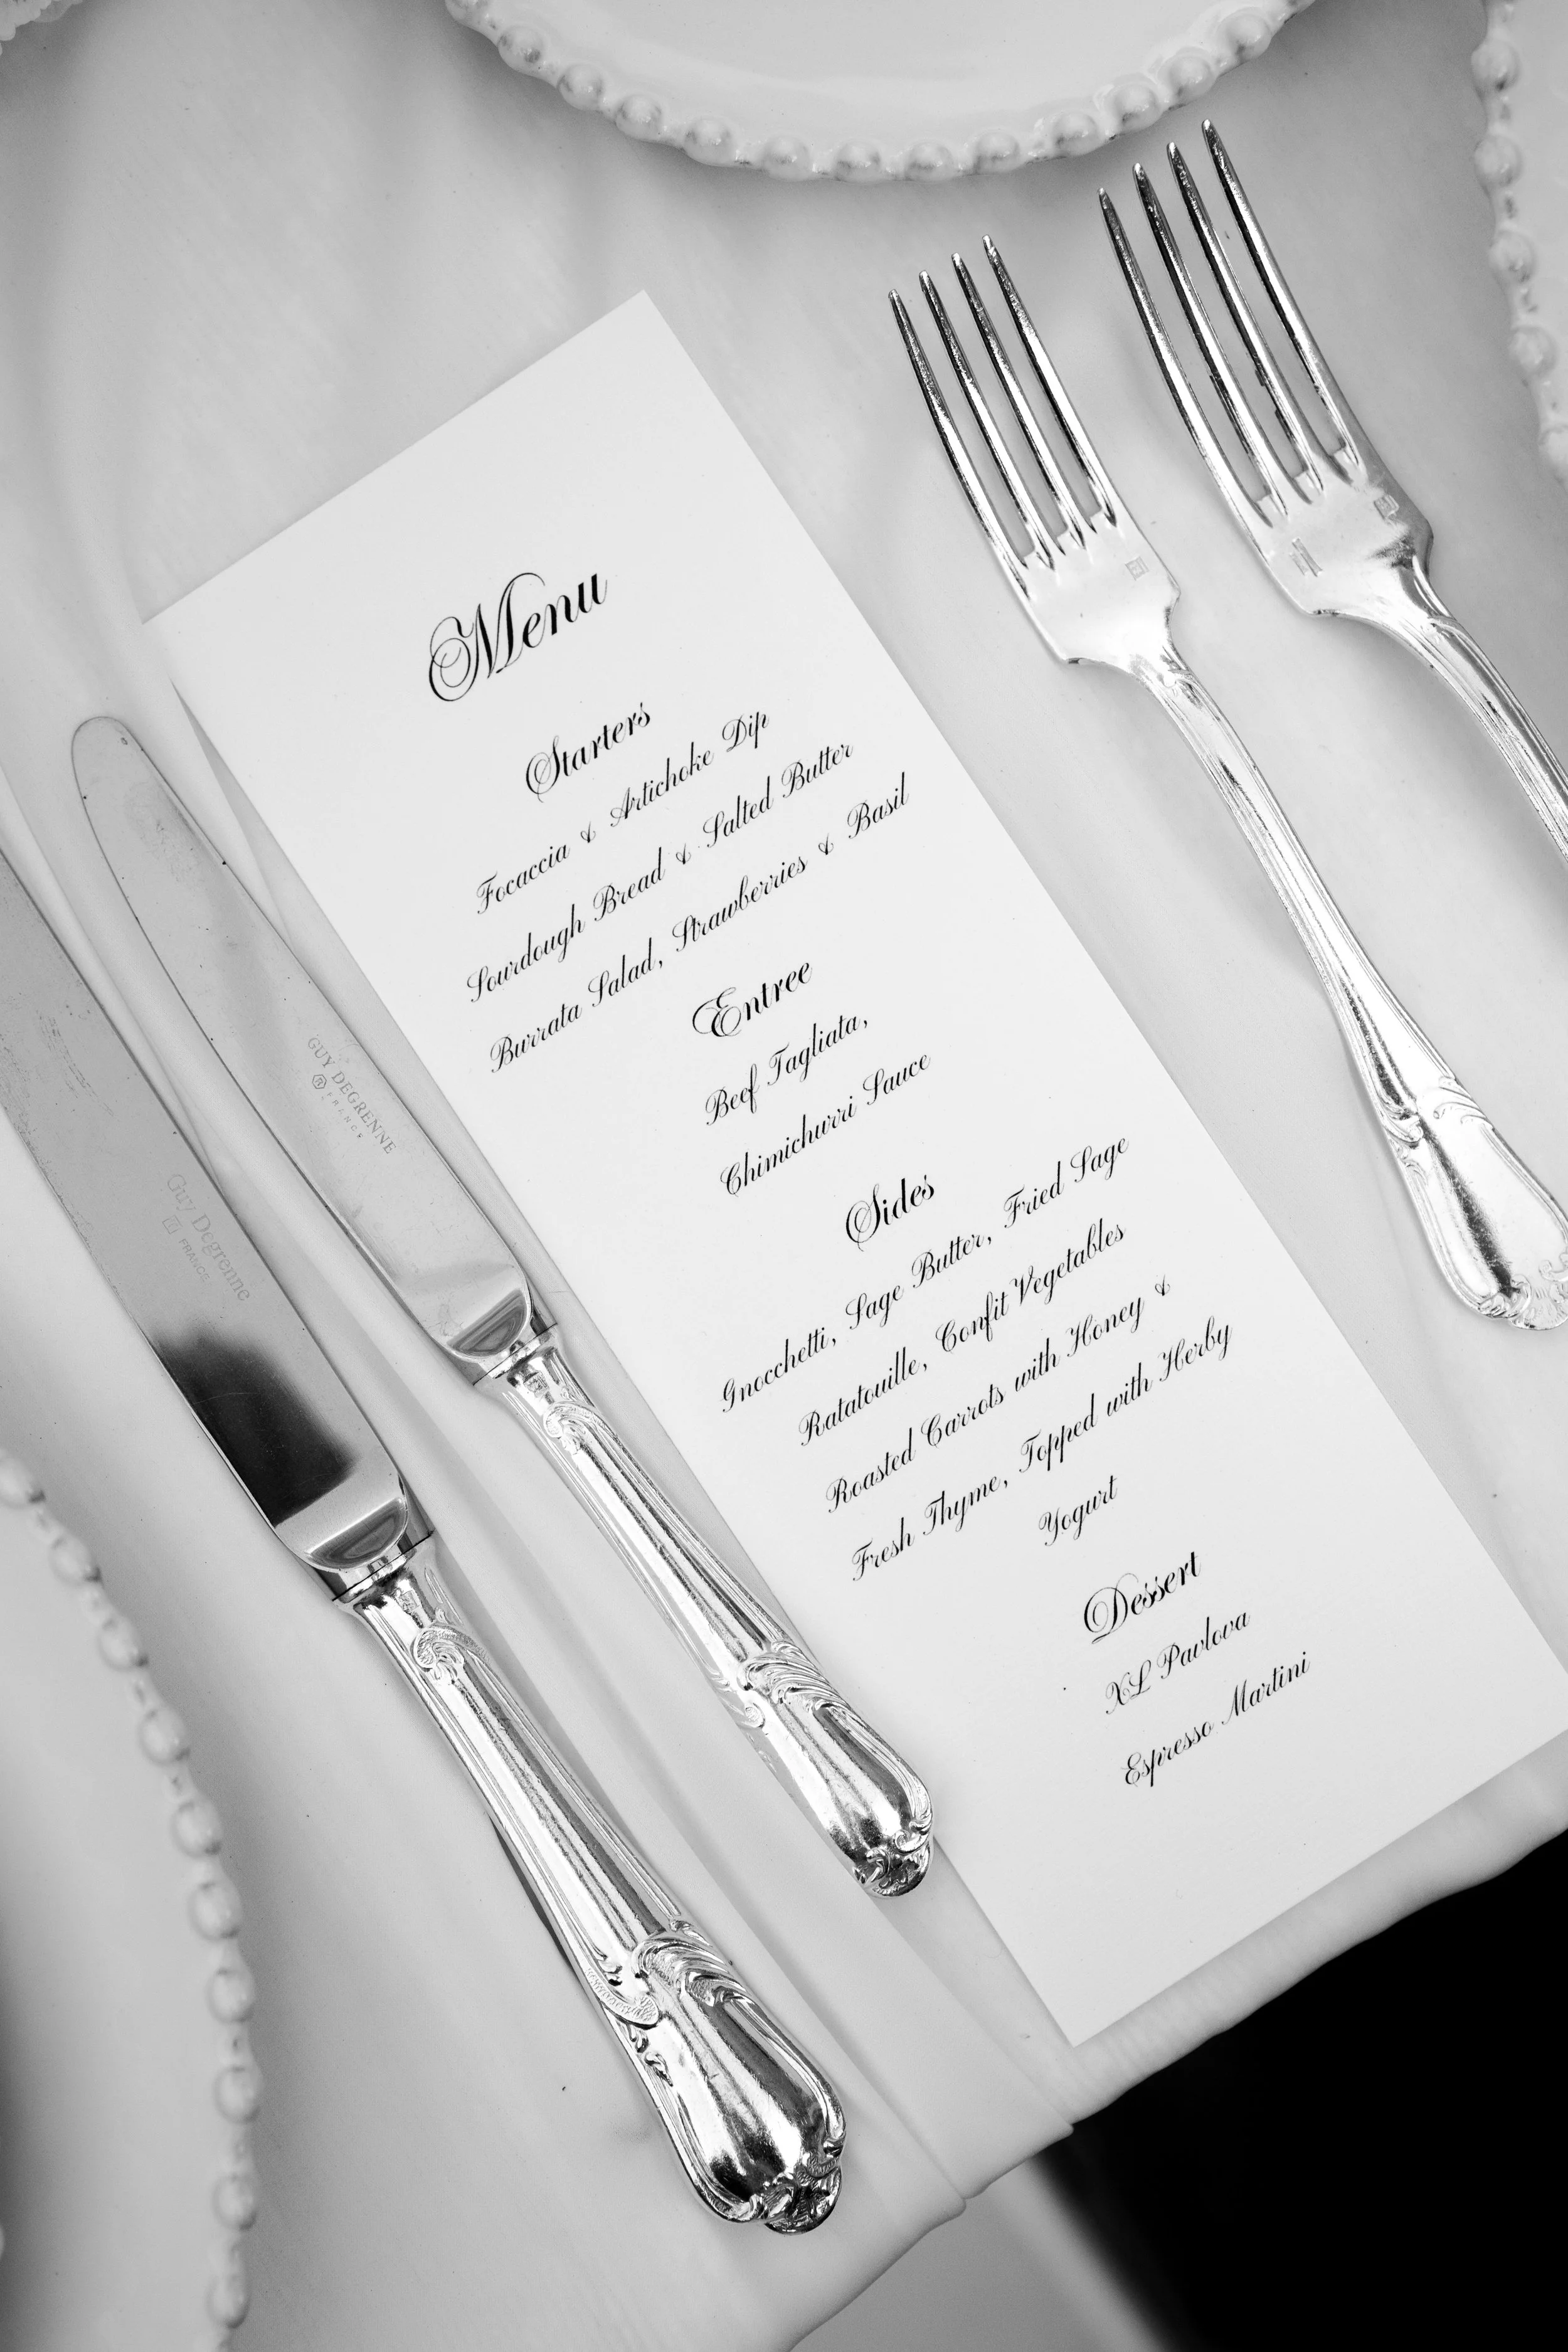 Menu
Starters
Focaccia & Artichoke Dip
Sourdough Bread & Salted Butter
Burrata Salad, Strawberries & Basil
Entree
Beef Tagliata,
Chimichurri Sauce
Sides
Gnocchetti, Sage Butter, Fried Sage
Ratatouille, Confit Vegetables
Roasted Carrots with Honey &
Fresh Thyme, Topped with Herby
Yogurt
Dessert
XL Pavlova
Espresso Martini
GUY DEGRENNE
FRANCE
Guy Degrenne
FRANCE